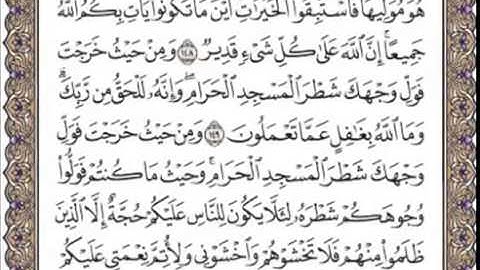 هُوَ مُوَلِّيهَا فَٱسْتَبِقُوا۟ ٱلْخَيْرَٰتِ أَيْنَ مَا تَكُونُوا۟ يَأْتِ بِكُمُ ٱللَّهُ
جَمِيعًا إِنَّ ٱللَّهَ عَلَىٰ كُلِّ شَىْءٍ قَدِيرٌ ١٤٨ وَمِنْ حَيْثُ خَرَجْتَ
فَوَلِّ وَجْهَكَ شَطْرَ ٱلْمَسْجِدِ ٱلْحَرَامِ وَإِنَّهُۥ لَلْحَقُّ مِن رَّبِّكَ
وَمَا ٱللَّهُ بِغَٰفِلٍ عَمَّا تَعْمَلُونَ ١٤٩ وَمِنْ حَيْثُ خَرَجْتَ فَوَلِّ
وَجْهَكَ شَطْرَ ٱلْمَسْجِدِ ٱلْحَرَامِ وَحَيْثُ مَا كُنتُمْ فَوَلُّوا۟
وُجُوهَكُمْ شَطْرَهُۥ لِئَلَّا يَكُونَ لِلنَّاسِ عَلَيْكُمْ حُجَّةٌ إِلَّا ٱلَّذِينَ
ظَلَمُوا۟ مِنْهُمْ فَلَا تَخْشَوْهُمْ وَٱخْشَوْنِى وَلِأُتِمَّ نِعْمَتِى عَلَيْكُمْ